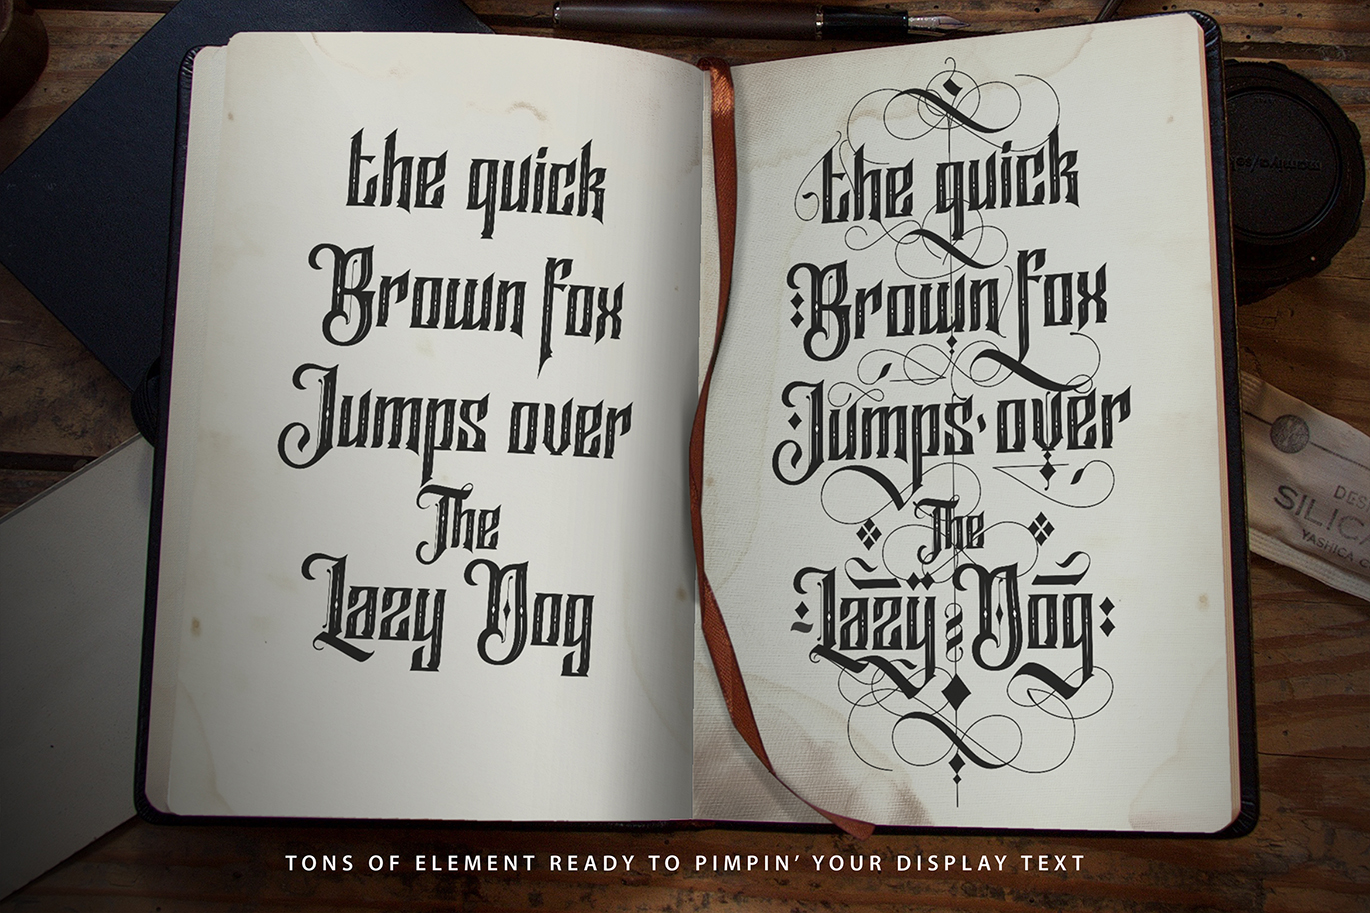 the quick
Brown fox
Jumps over
The
Lazy Dog
the quick
Brown fox
Jumps·over
The
Lazy Dog
SILICA
YASHICA
TONS OF ELEMENT READY TO PIMPIN’ YOUR DISPLAY TEXT